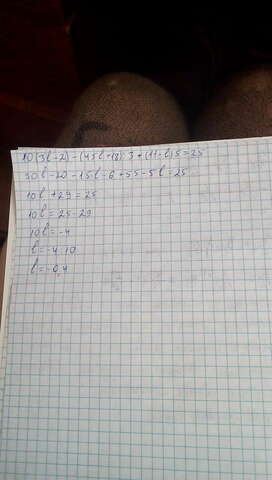 10(3l-2)-(45l+18):3+(11-l)5=25
30l-20-15l-6+55-5l=25
10l+29=25
10l=25-29
10l=-4
l=-4:10
l=-0,4